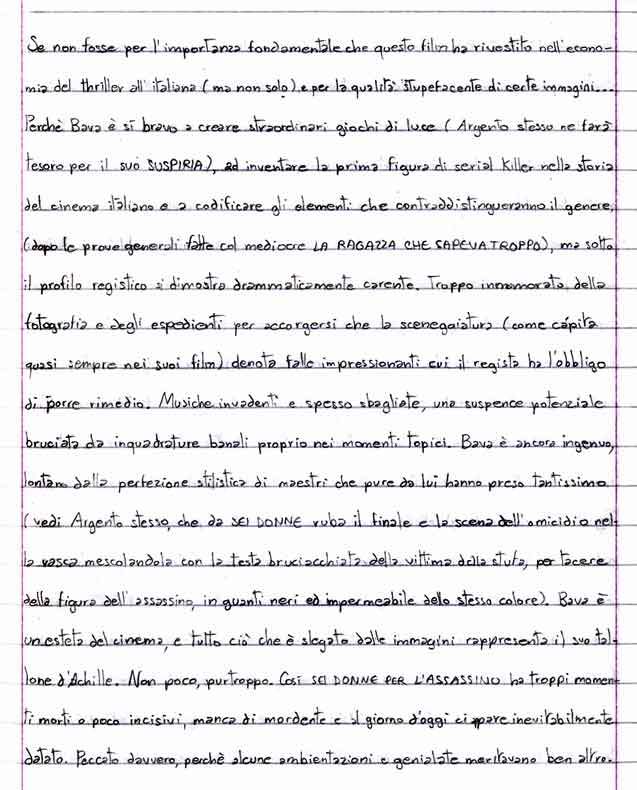 Se non fosse per l'importanza fondamentale che questo film ha rivestito nell'econo-
mia del thriller all'italiana (ma non solo) e per la qualità stupefacente di certe immagini...
Perchè Bava è sì bravo a creare straordinari giochi di luce (Argento stesso ne farà
tesoro per il suo SUSPIRIA), ad inventare la prima figura di serial Killer nella storia
del cinema italiano e a codificare gli elementi che contraddistingueranno il genere,
(dopo le prove generali fatte col mediocre LA RAGAZZA CHE SAPEVA TROPPO), ma sotto
il profilo registico si dimostra drammaticamente carente. Troppo innamorato della
fotografia e degli espedienti per accorgersi che la scenegaiatura (come càpita
quasi sempre nei suoi film) denota falle impressionanti cui il regista ha l'obbligo
di porre rimedio. Musiche invadenti e spesso sbagliate, una suspence potenziale
bruciata da inquadrature banali proprio nei momenti topici. Bava è ancora ingenuo,
lontano dalla perfezione stilistica di maestri che pure da lui hanno preso tantissimo
(vedi Argento stesso, che da SEI DONNE ruba il finale e la scena dell'omicidio nel-
la vasca mescolandola con la testa bruciacchiata della vittima dalla stufa, per tacere
della figura dell'assassino, in guanti neri ed impermeabile dello stesso colore). Bava è
un esteta del cinema, e tutto ciò che è slegato dalle immagini rappresenta il suo tal-
lone d'Achille. Non poco, purtroppo. Così SEI DONNE PER L'ASSASSINO ha troppi momen-
ti morti o poco incisivi, manca di mordente e al giorno d'oggi ci appare inevitabilmente
datato. Peccato davvero, perchè alcune ambientazioni e genialate meritavano ben altro.